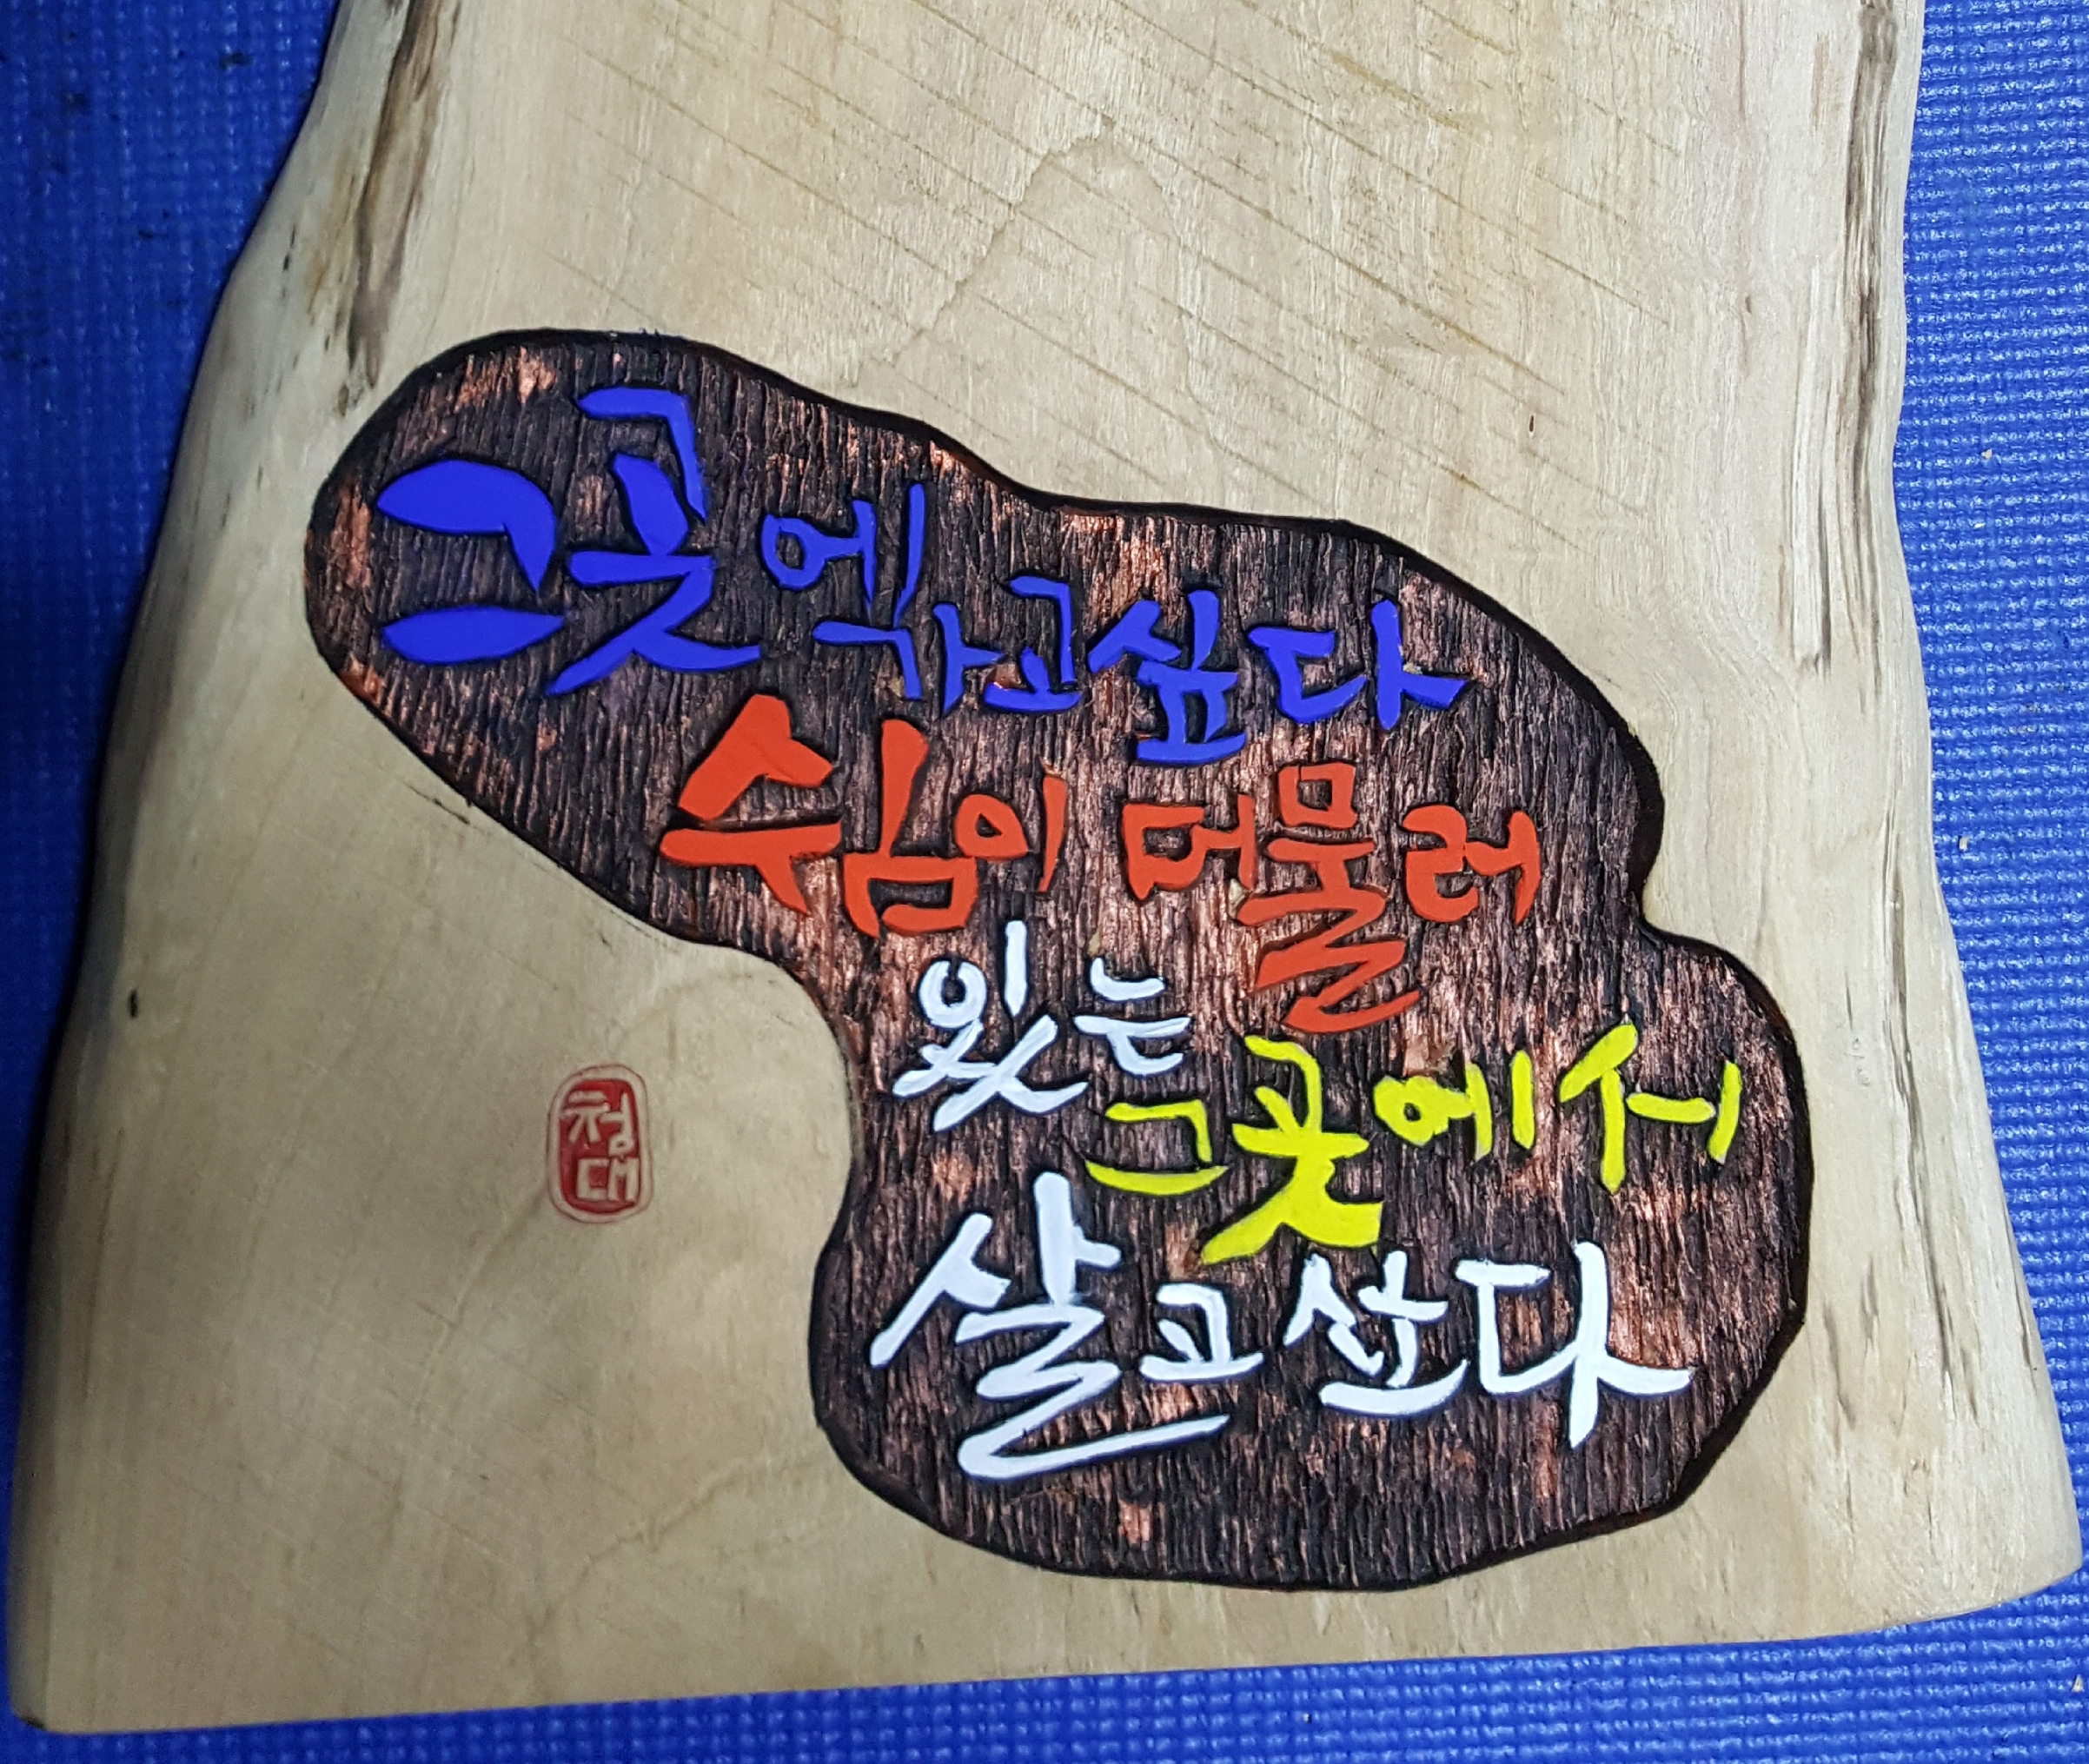 그곳에 가고싶다
쉼이 머물러
있는
그곳에서
살고싶다
청대